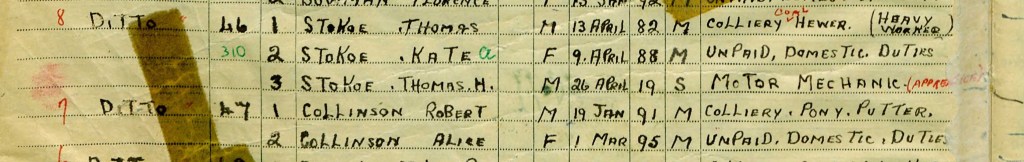 8 DITTO 46 1 STOKOE .THOMAS M 13 APRIL 82 M COLLIERY COAL HEWER. (HEAVY WORKER)
310 2 STOKOE .KATE a F 9.APRIL 88 M UNPAID, DOMESTIC DUTIES
3 STOKOE .THOMAS.H. M 26 APRIL 19 S MOTOR MECHANIC.
7 DITTO 47 1 COLLINSON ROBERT M 19 JAN 91 M COLLIERY.PONY.PUTTER.
2 COLLINSON ALICE F 1 MAR 95 M UNPAID, DOMESTIC, DUTIES